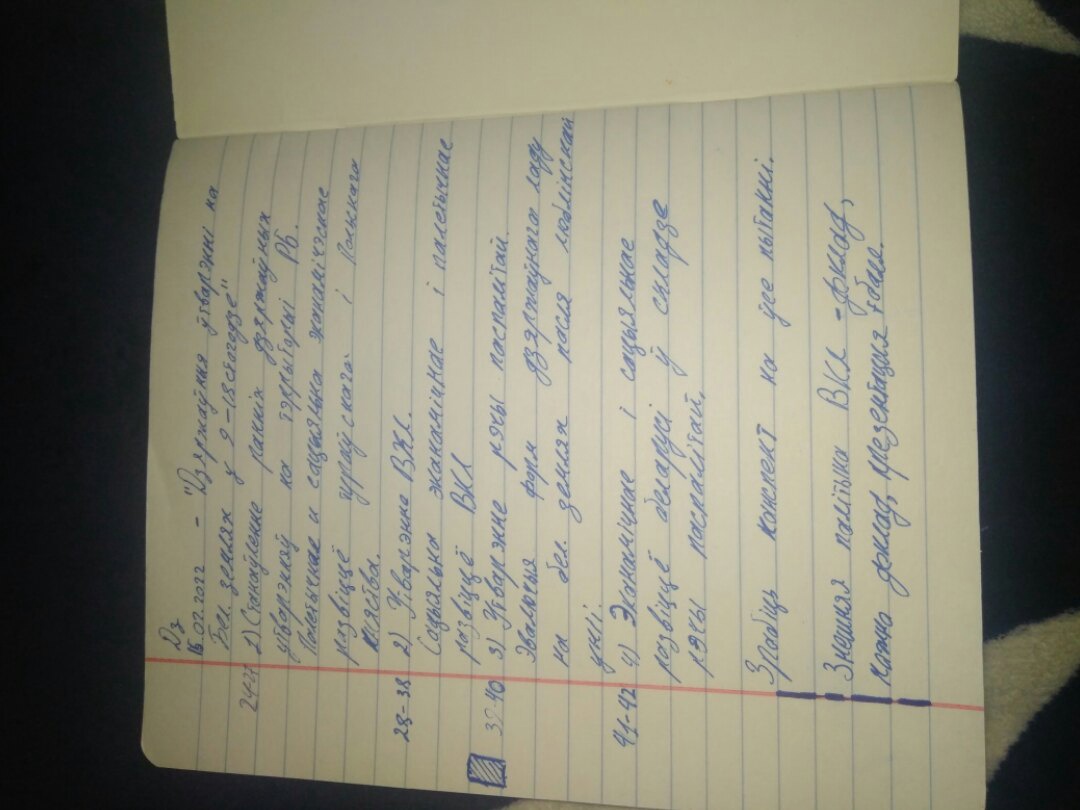 Дз
15.02.2022 - "Дзяржаўныя ўтварэнні на
Бел. землях у 9-18 стагодзе"
24-27 1) Станаўленне ранніх дзяржаўных
утварэнняў на тэррыторыі РБ.
Палетычнае и сацыяльна эканамічэскае
развіццё тураўскага і Полыскага
княства.
28-38 2) Утварэнне ВКЛ.
Сацыяльна эканамічнае і палетычнае
развіццё ВКЛ
39-40 3) Утварэнне рэчы паспалітай.
Эвалюцыя форм дзяржаўнага ладу
на бел. землях пасля люблінскай
уніі.
41-42 4) Эканамічнае і сацыяльнае
развіццё беларусі ў складзе
рэчы паспалітай.
Зрабіць канспект на ўсе пытанні.
Знешняя палітыка ВКЛ - доклад,
можно доклад, презентацыя + бала.